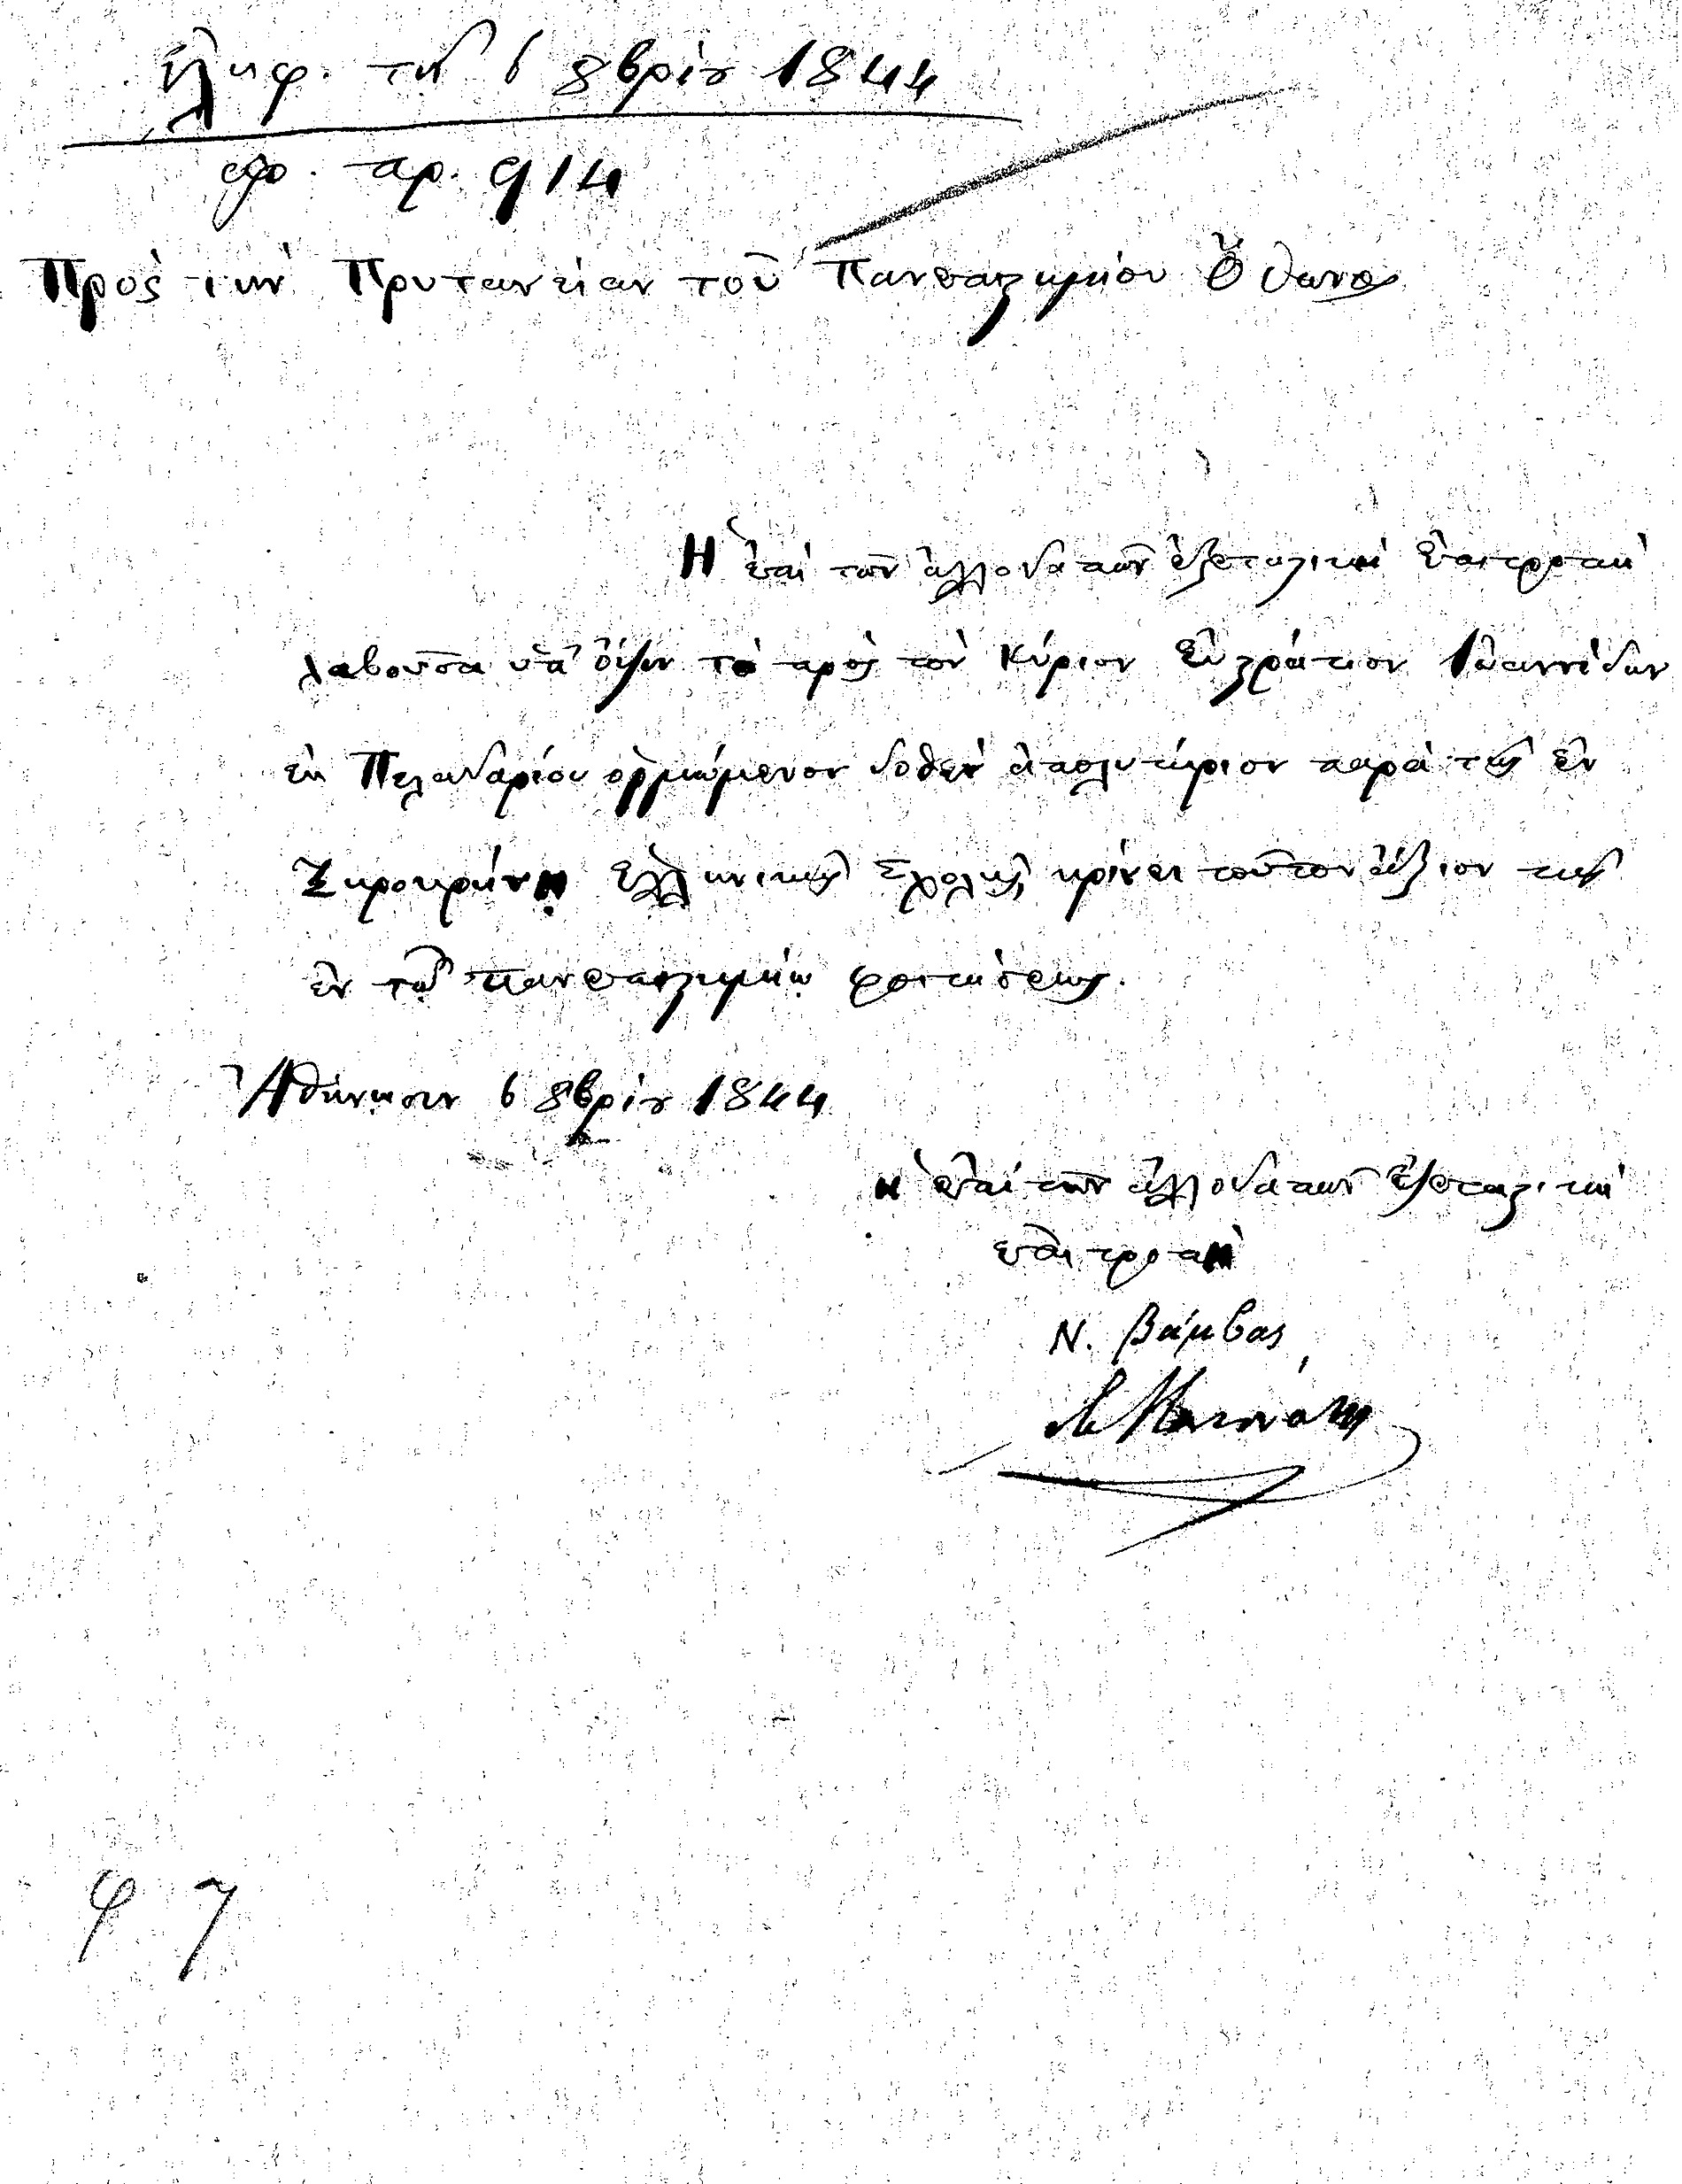 ἐλήφ. τῇ 6 8βρίου 1844
πρ. ἀρ. 914
Πρὸς τὴν Πρυτανείαν τοῦ Πανεπιστημίου Ὄθωνος
Ἡ ἐπὶ τῶν ἀλλοδαπῶν ἐξεταστικὴ Ἐπιτροπὴ
λαβοῦσα ὑπ' ὄψιν τὸ πρὸς τὸν Κύριον Εὐστράτιον Ἰωαννίδην
ἐκ ὁρμώμενον δοθὲν ἀπολυτήριον παρὰ τῆς ἐν
Ξηροκρήνῃ Ἑλληνικῆς Σχολῆς, κρίνει τοῦτον ἄξιον τῆς
ἐν τῷ Πανεπιστημίῳ φοιτήσεως.
Ἀθήνησιν 6 8βρίου 1844
ἡ ἐπὶ τῶν ἀλλοδαπῶν ἐξεταστικὴ
ἐπιτροπὴ
Ν. Βάμβας
φ 7